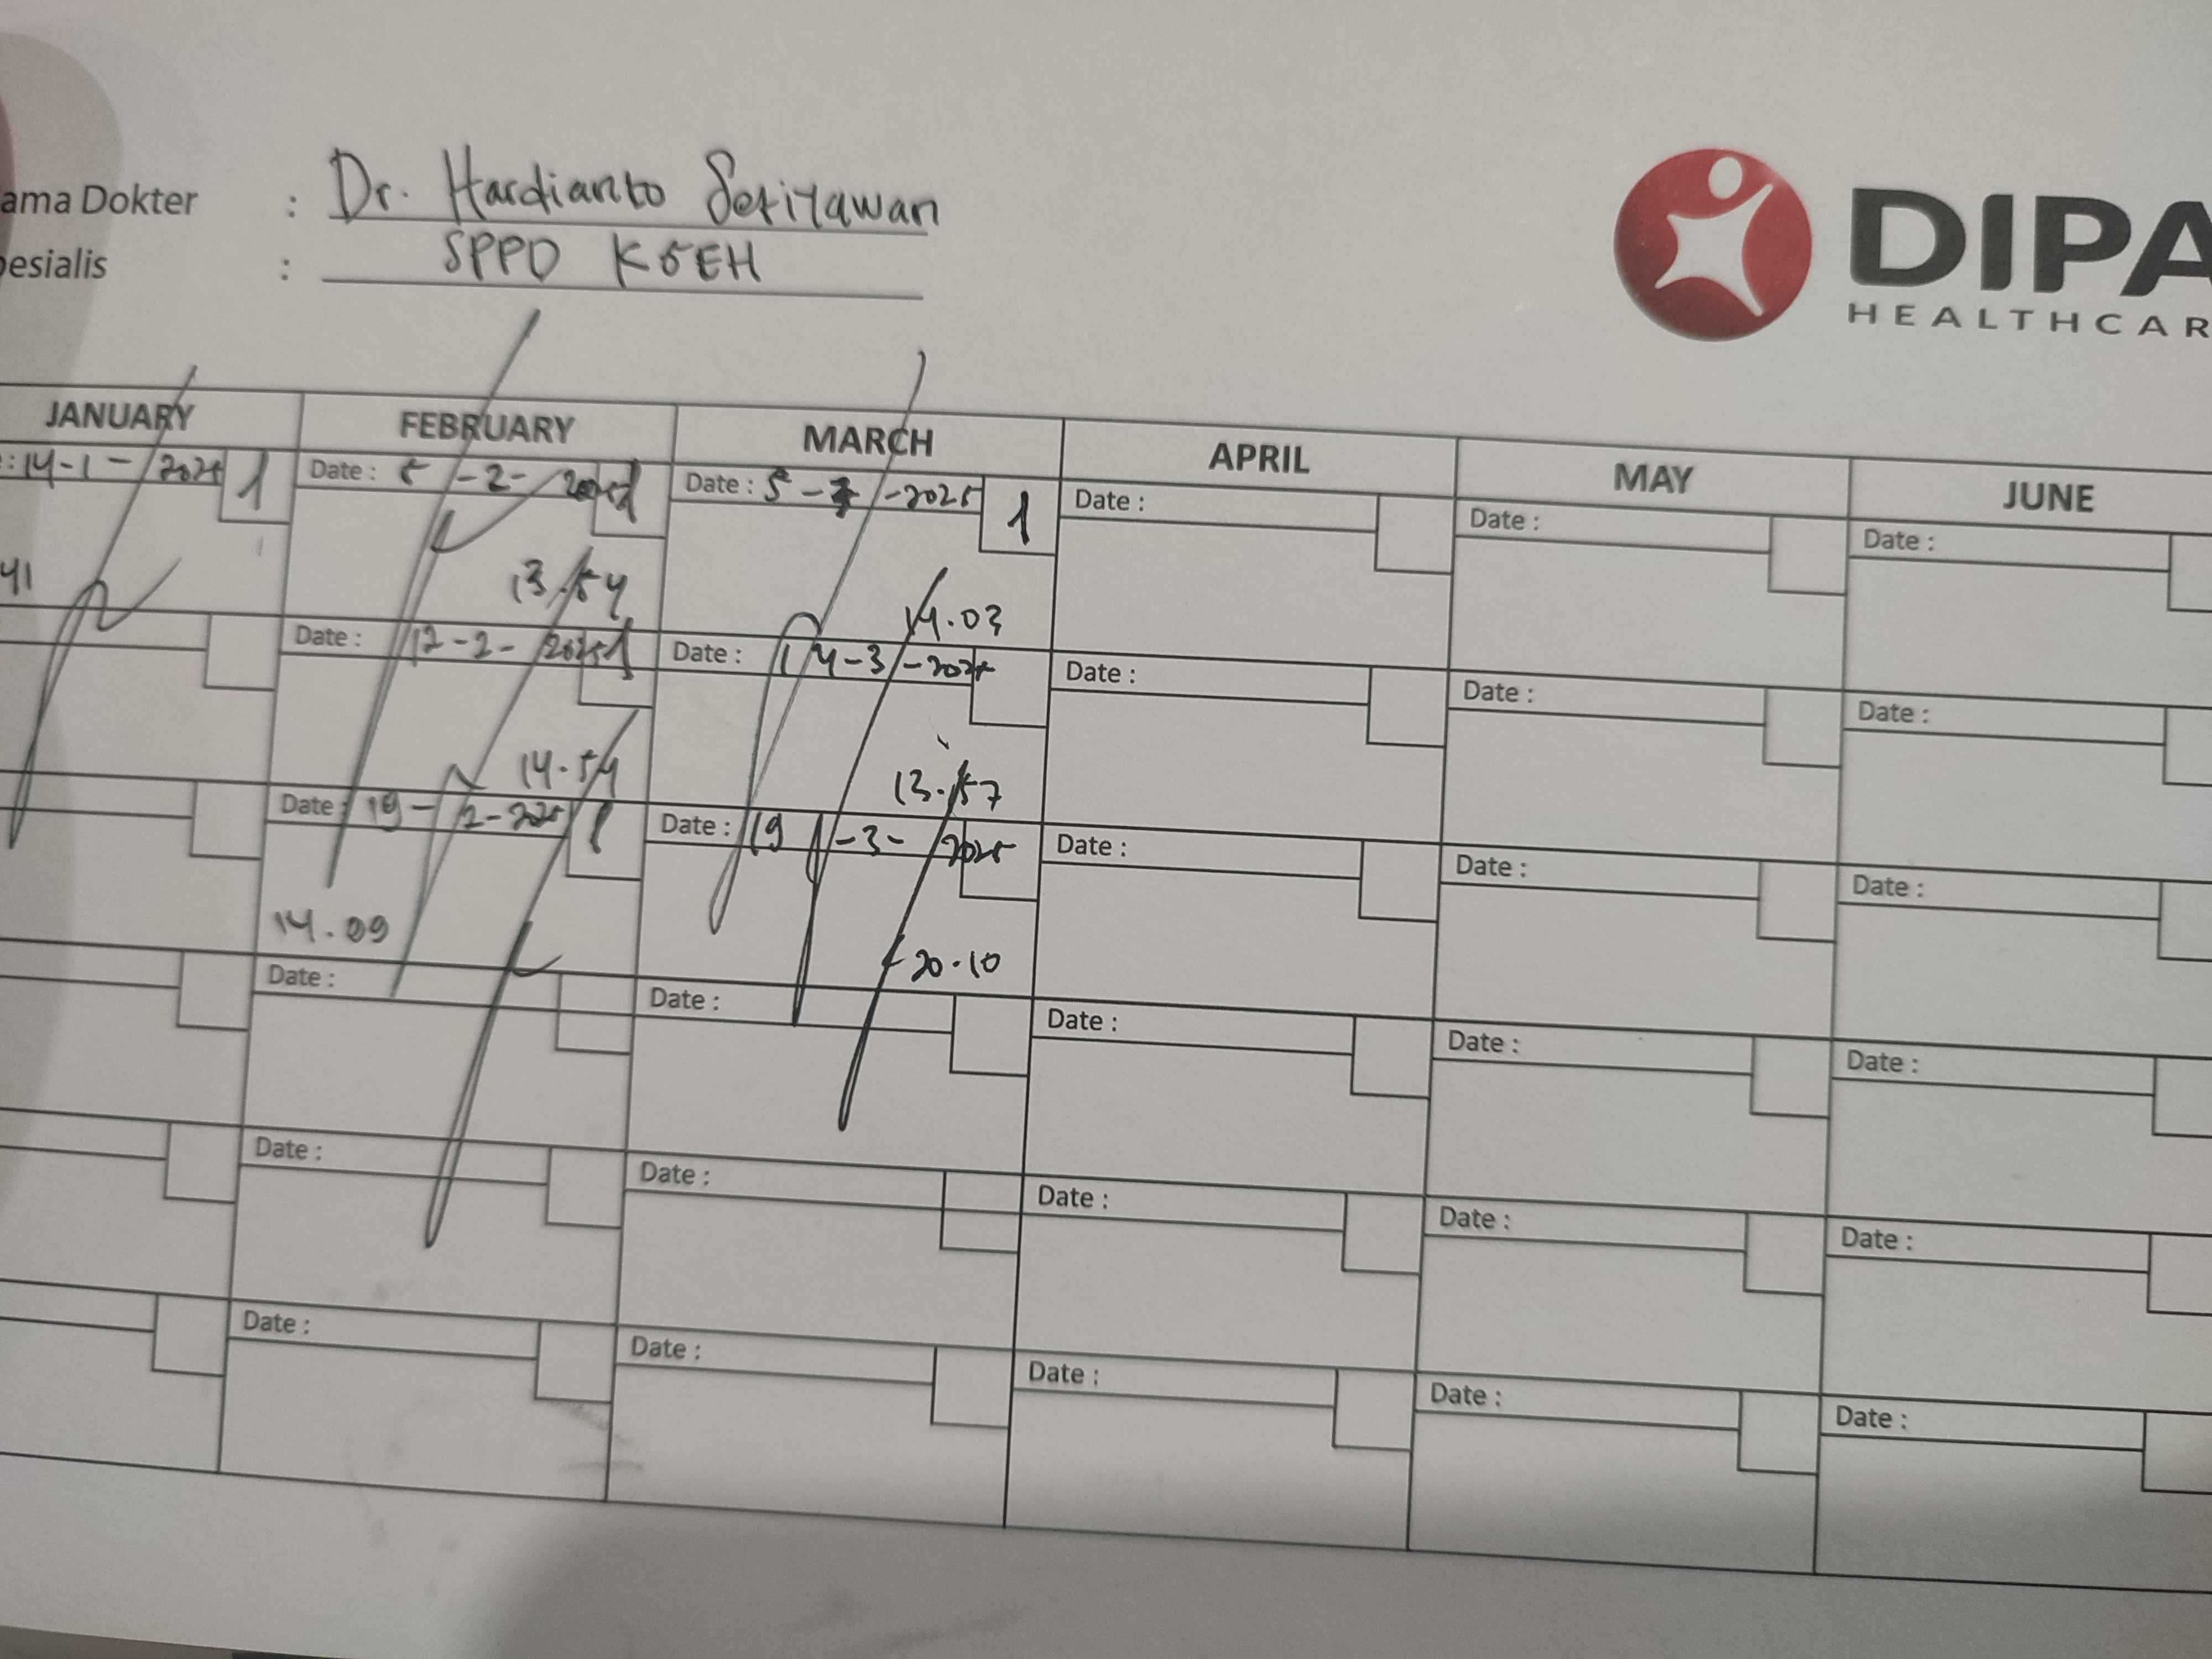 ama Dokter : Dr. Hardianto Setiyawan
esialis : SPPD KGEH
DIPA
HEALTHCAR
JANUARY FEBRUARY MARCH APRIL MAY JUNE
: 14-1-2025 1 Date : 5-2-2025 1 Date : 5-3-2025 1 Date : Date : Date :
41 13.54 14.03
Date : 12-2-2025 1 Date : 14-3-2025 Date : Date : Date :
14.54 13.57
Date : 19-2-2025 1 Date : 19-3-2025 Date : Date : Date :
14.09 20.10
Date : Date : Date : Date : Date :
Date : Date : Date : Date : Date :
Date : Date : Date : Date : Date :